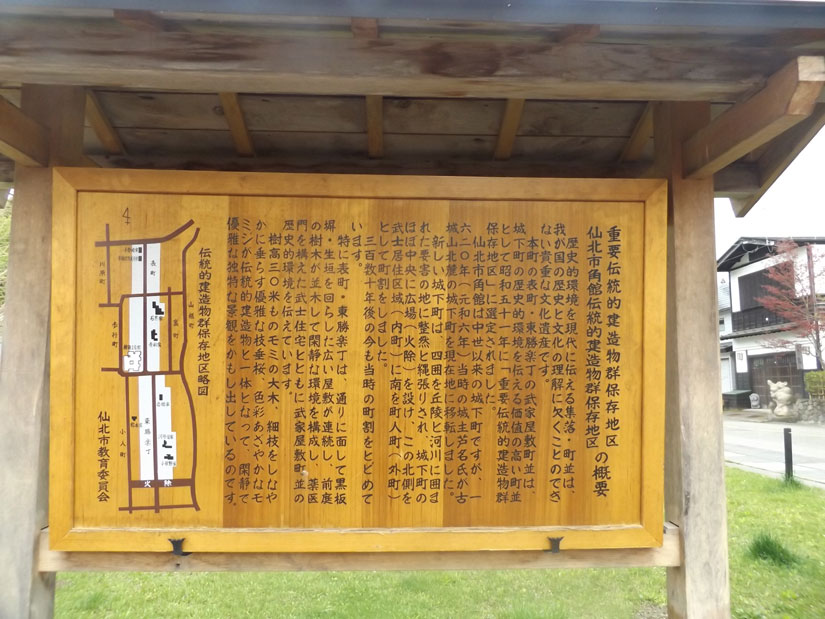 重要伝統的建造物群保存地区
仙北市角館伝統的建造物群保存地区
の概要
歴史的環境を現代に伝える集落・町並は、
我が国の歴史と文化の理解に欠くことのできな
い貴重な文化遺産です。
本町の表町・東勝楽丁の武家屋敷町並は、
城下町の歴史的環境を伝える価値の高い町並
として昭和五十一年に「重要伝統的建造物群
保存地区」に選定されました。
仙北市角館は中世以来の城下町ですが、一
六二〇年(元和六年)当時の城主芦名氏が古
城山北麓の城下町を現在地に移転しました。
新しい城下町は、四囲を丘陵と河川に囲ま
れた要害の地に整然と縄張りされ、城下町の
ほぼ中央に広場(火除)を設け、この北側を
武士居住区域(内町)に南を町人町(外町)
として町割をしました。
三百数十年後の今も当時の町割をとどめて
います。
特に表町・東勝楽丁は、通りに面して黒板
塀・生垣を回らした広い屋敷が連続し、前庭
の樹木が並木して閑静な環境を構成し、薬医
門を構えた武士住宅とともに武家屋敷町並の
歴史的環境を伝えています。
樹高三〇米ものモミの大木、細枝をしなや
かに垂らす優雅な枝垂桜、色彩あざやかなモ
ミジが伝統的建造物と一体となって、閑静で
優雅な独特な景観をかもし出しているのです。
伝統的建造物群保存地区略図
表町
裏町
歩行町
東勝楽丁
小人町
火除
仙北市教育委員会